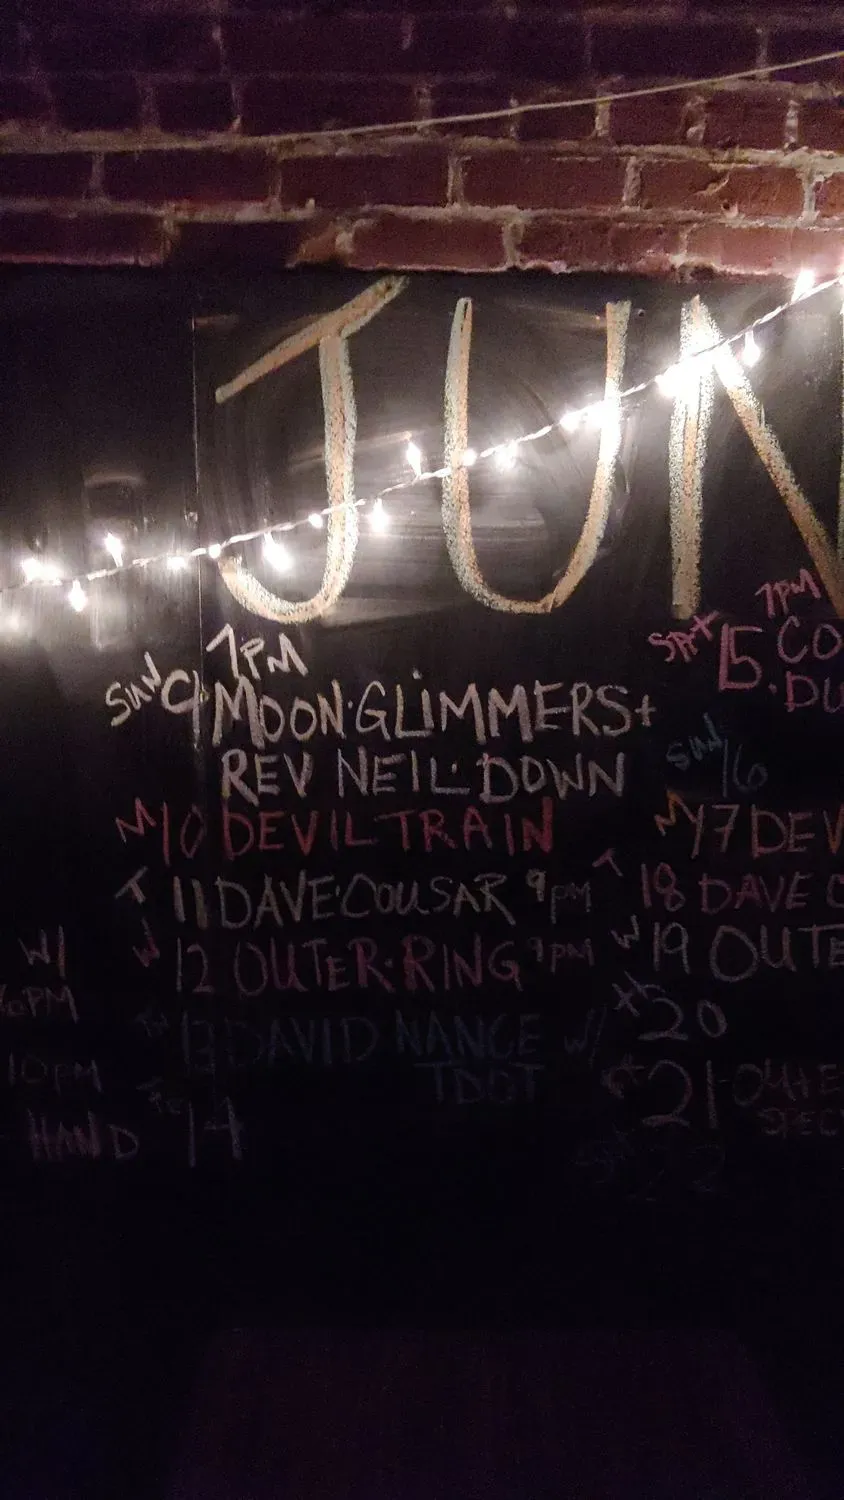 JUN
7PM
SUN 9 MOON·GLIMMERS+
REV NEIL·DOWN
M 10 DEVIL TRAIN
T 11 DAVE·COUSAR 9PM
W 12 OUTER·RING 9PM
TH 13 DAVID NANCE W/
TDGT
14
7PM
SAT 15 CO
DU
SUN 16
M 17 DEV
T 18 DAVE C
W 19 OUTE
TH 20
21 OUTE
SPEC
22
W/
PM
10PM
HAND